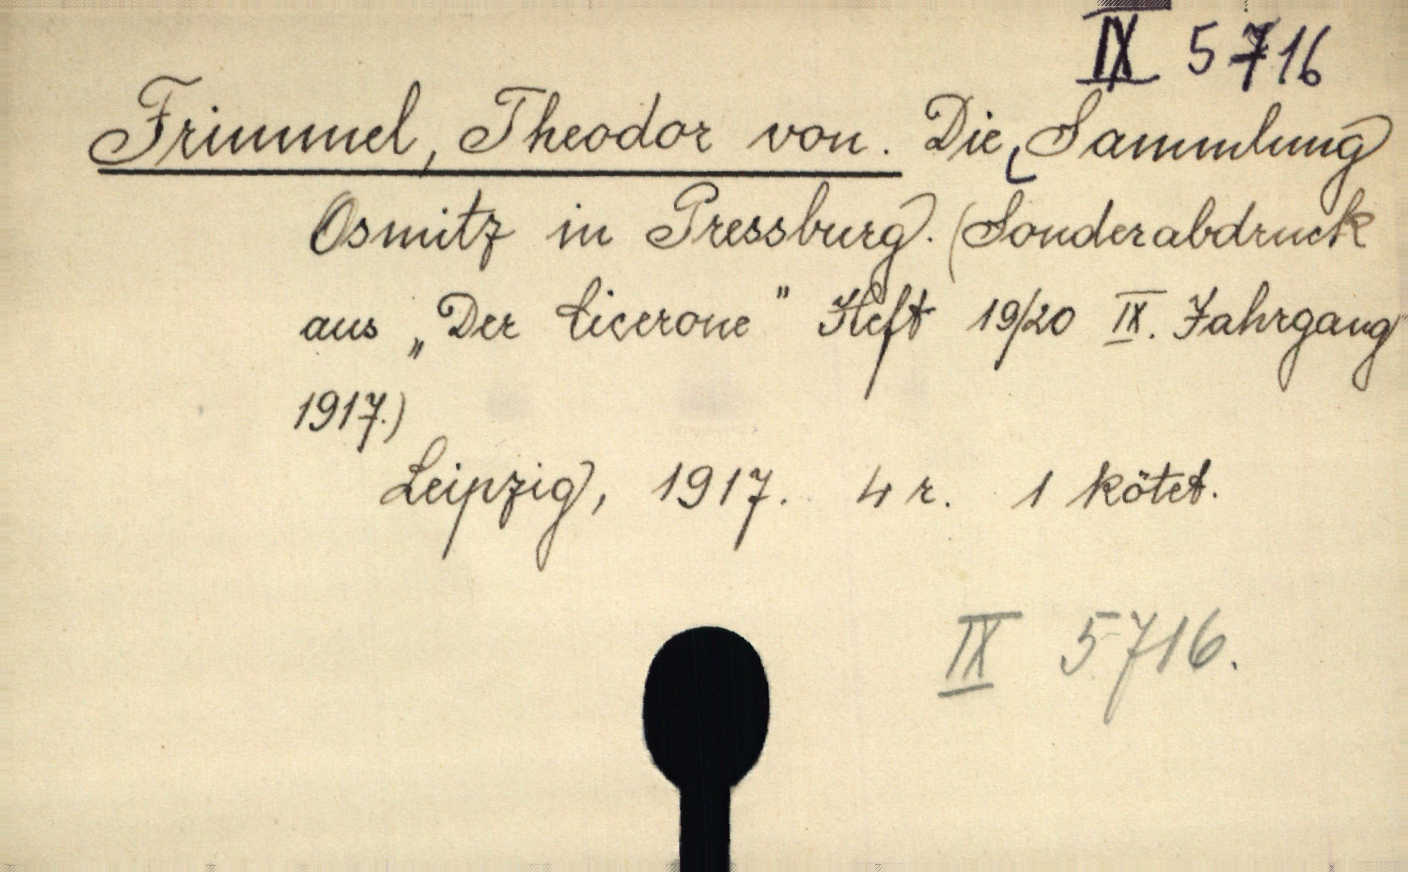 IX 5716
Frimmel, Theodor von. Die Sammlung
Osmitz in Pressburg. (Sonderabdruck
aus „Der Cicerone" Heft 19/20 IX. Jahrgang
1917.)
Leipzig, 1917. 4 r. 1 kötet.
IX 5716.